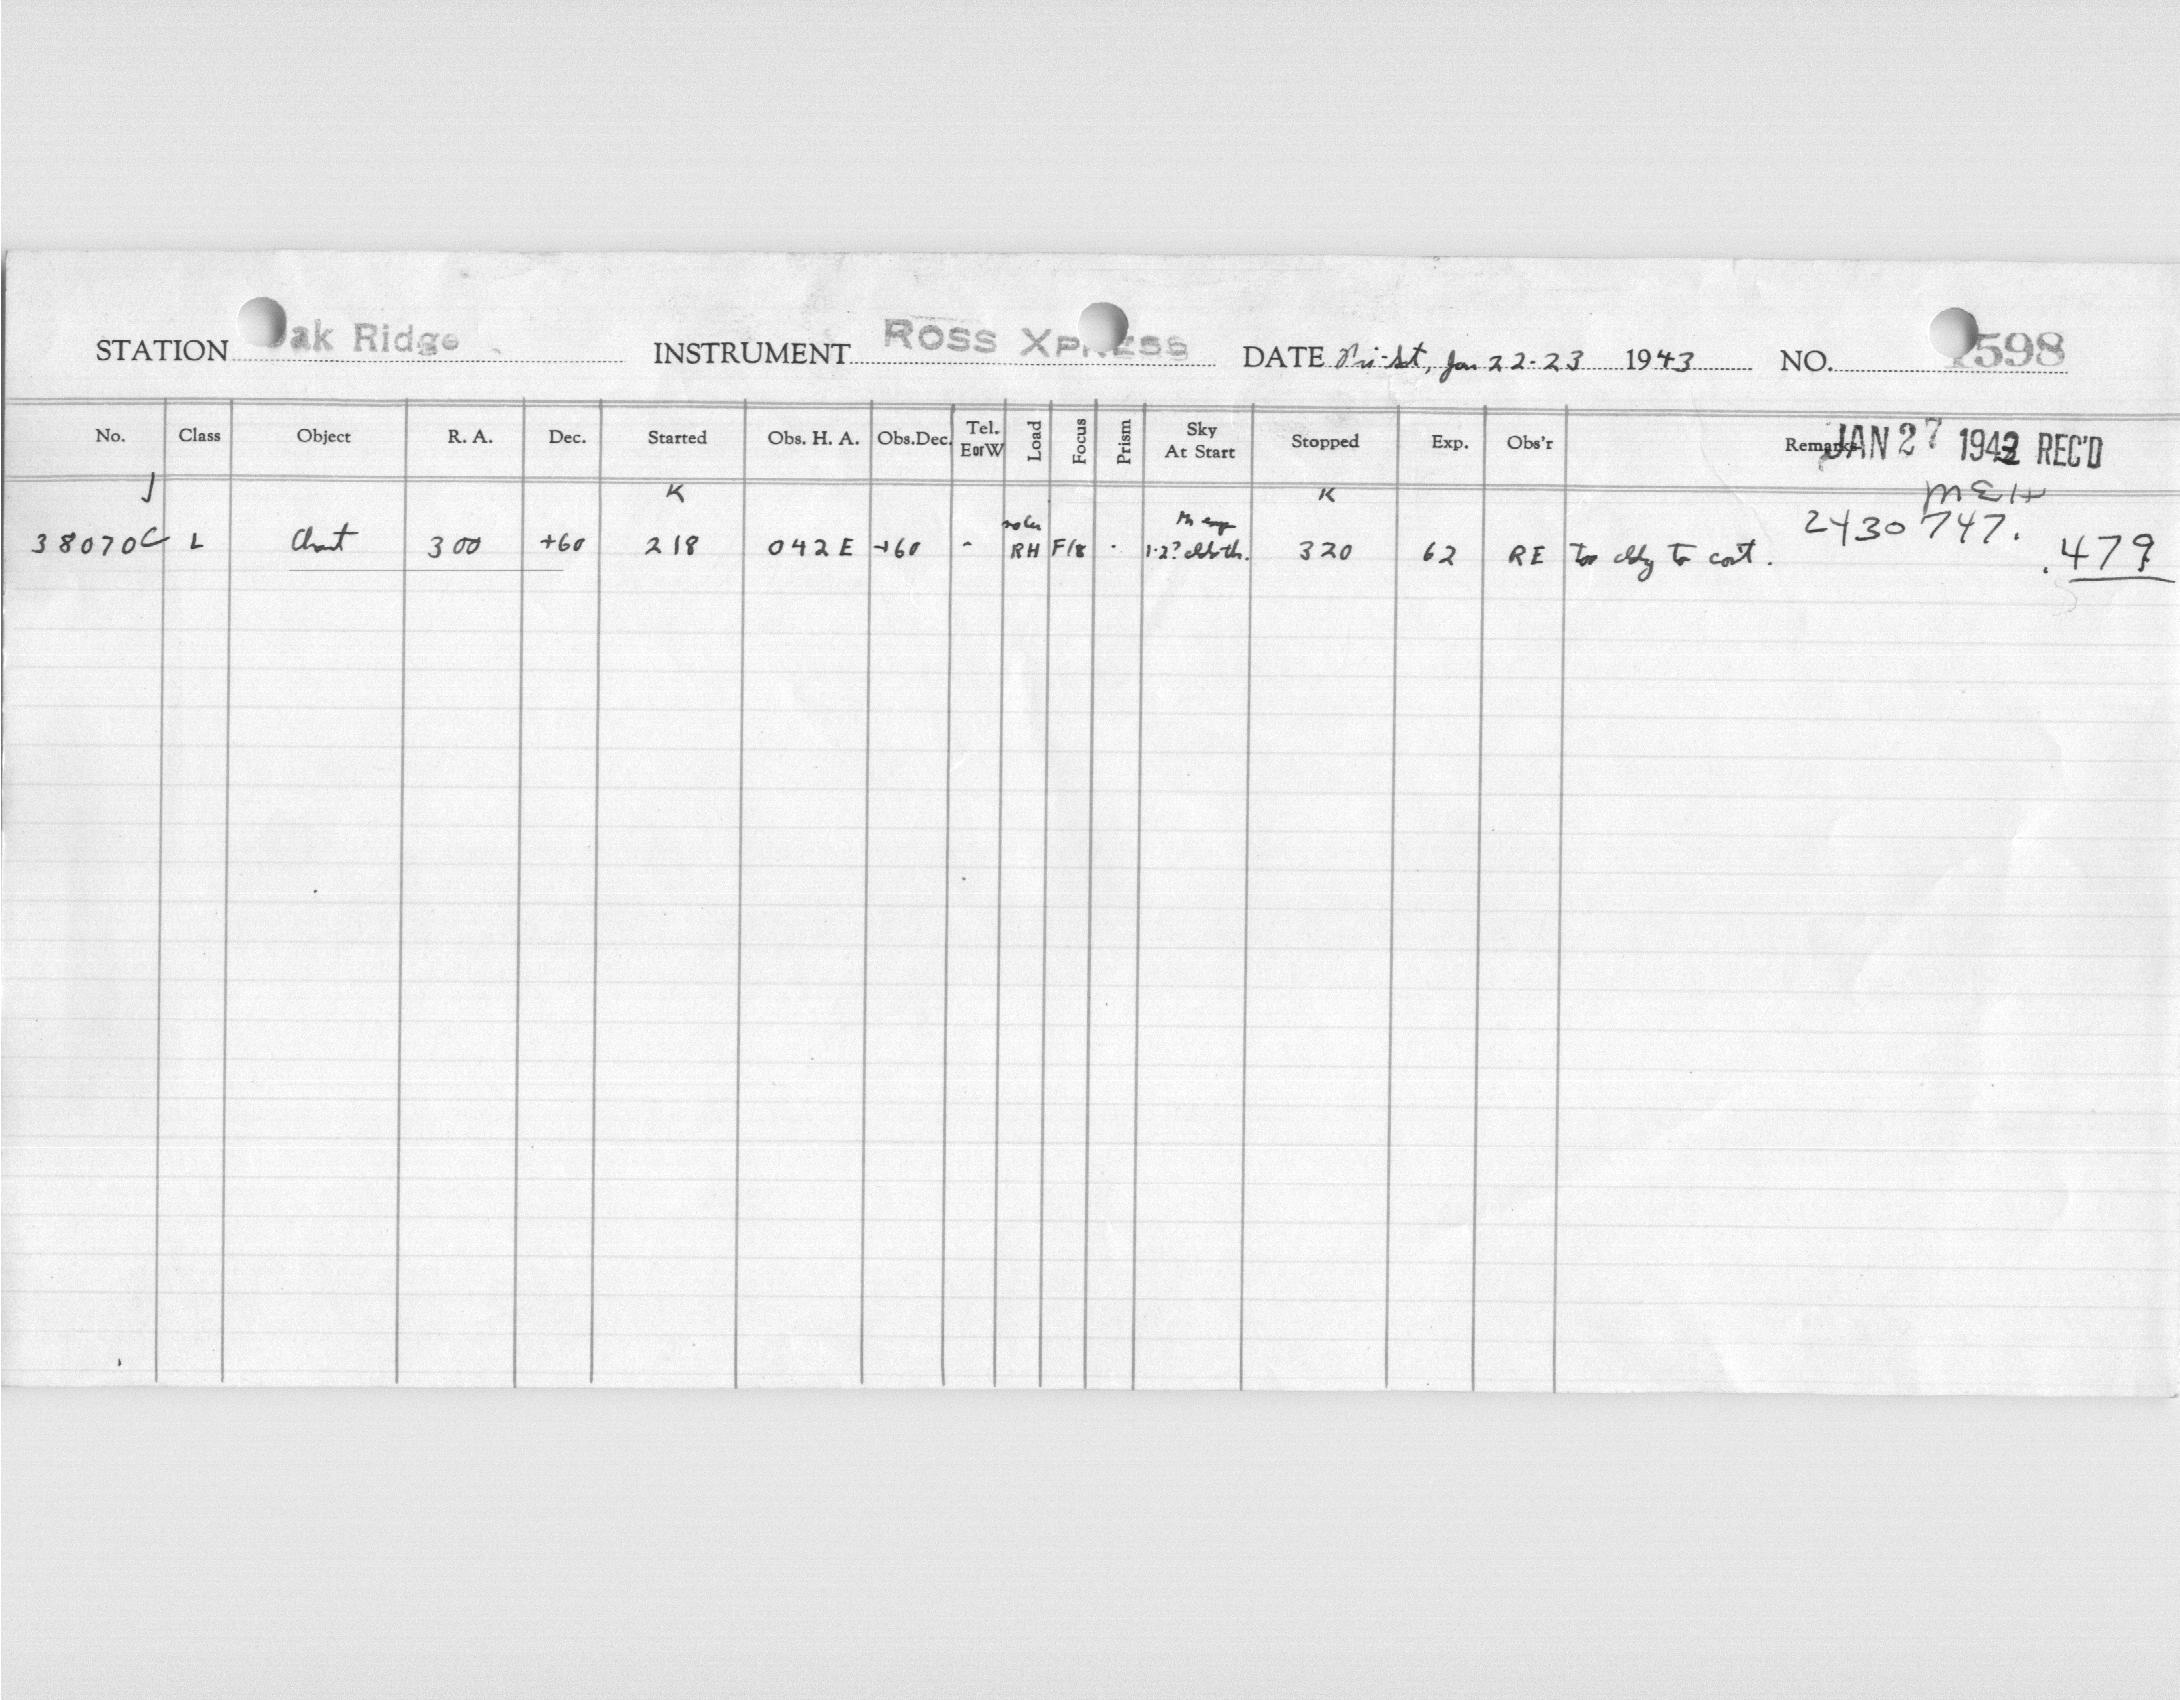 STATION Oak Ridge INSTRUMENT ROSS XPRESS DATE Fri-Sat, Jan 22-23 1943 NO. 1598
No. Class Object R. A. Dec. Started Obs. H. A. Obs.Dec. Tel. E or W Load Focus Prism Sky At Start Stopped Exp. Obs'r Remarks
JAN 27 1943 REC'D
J K K MEH
38070C L Chart 300 +60 218 042E +60 - RH F/8 - 1-2? 320 62 RE Too cldy to cont. 2430747.
.479